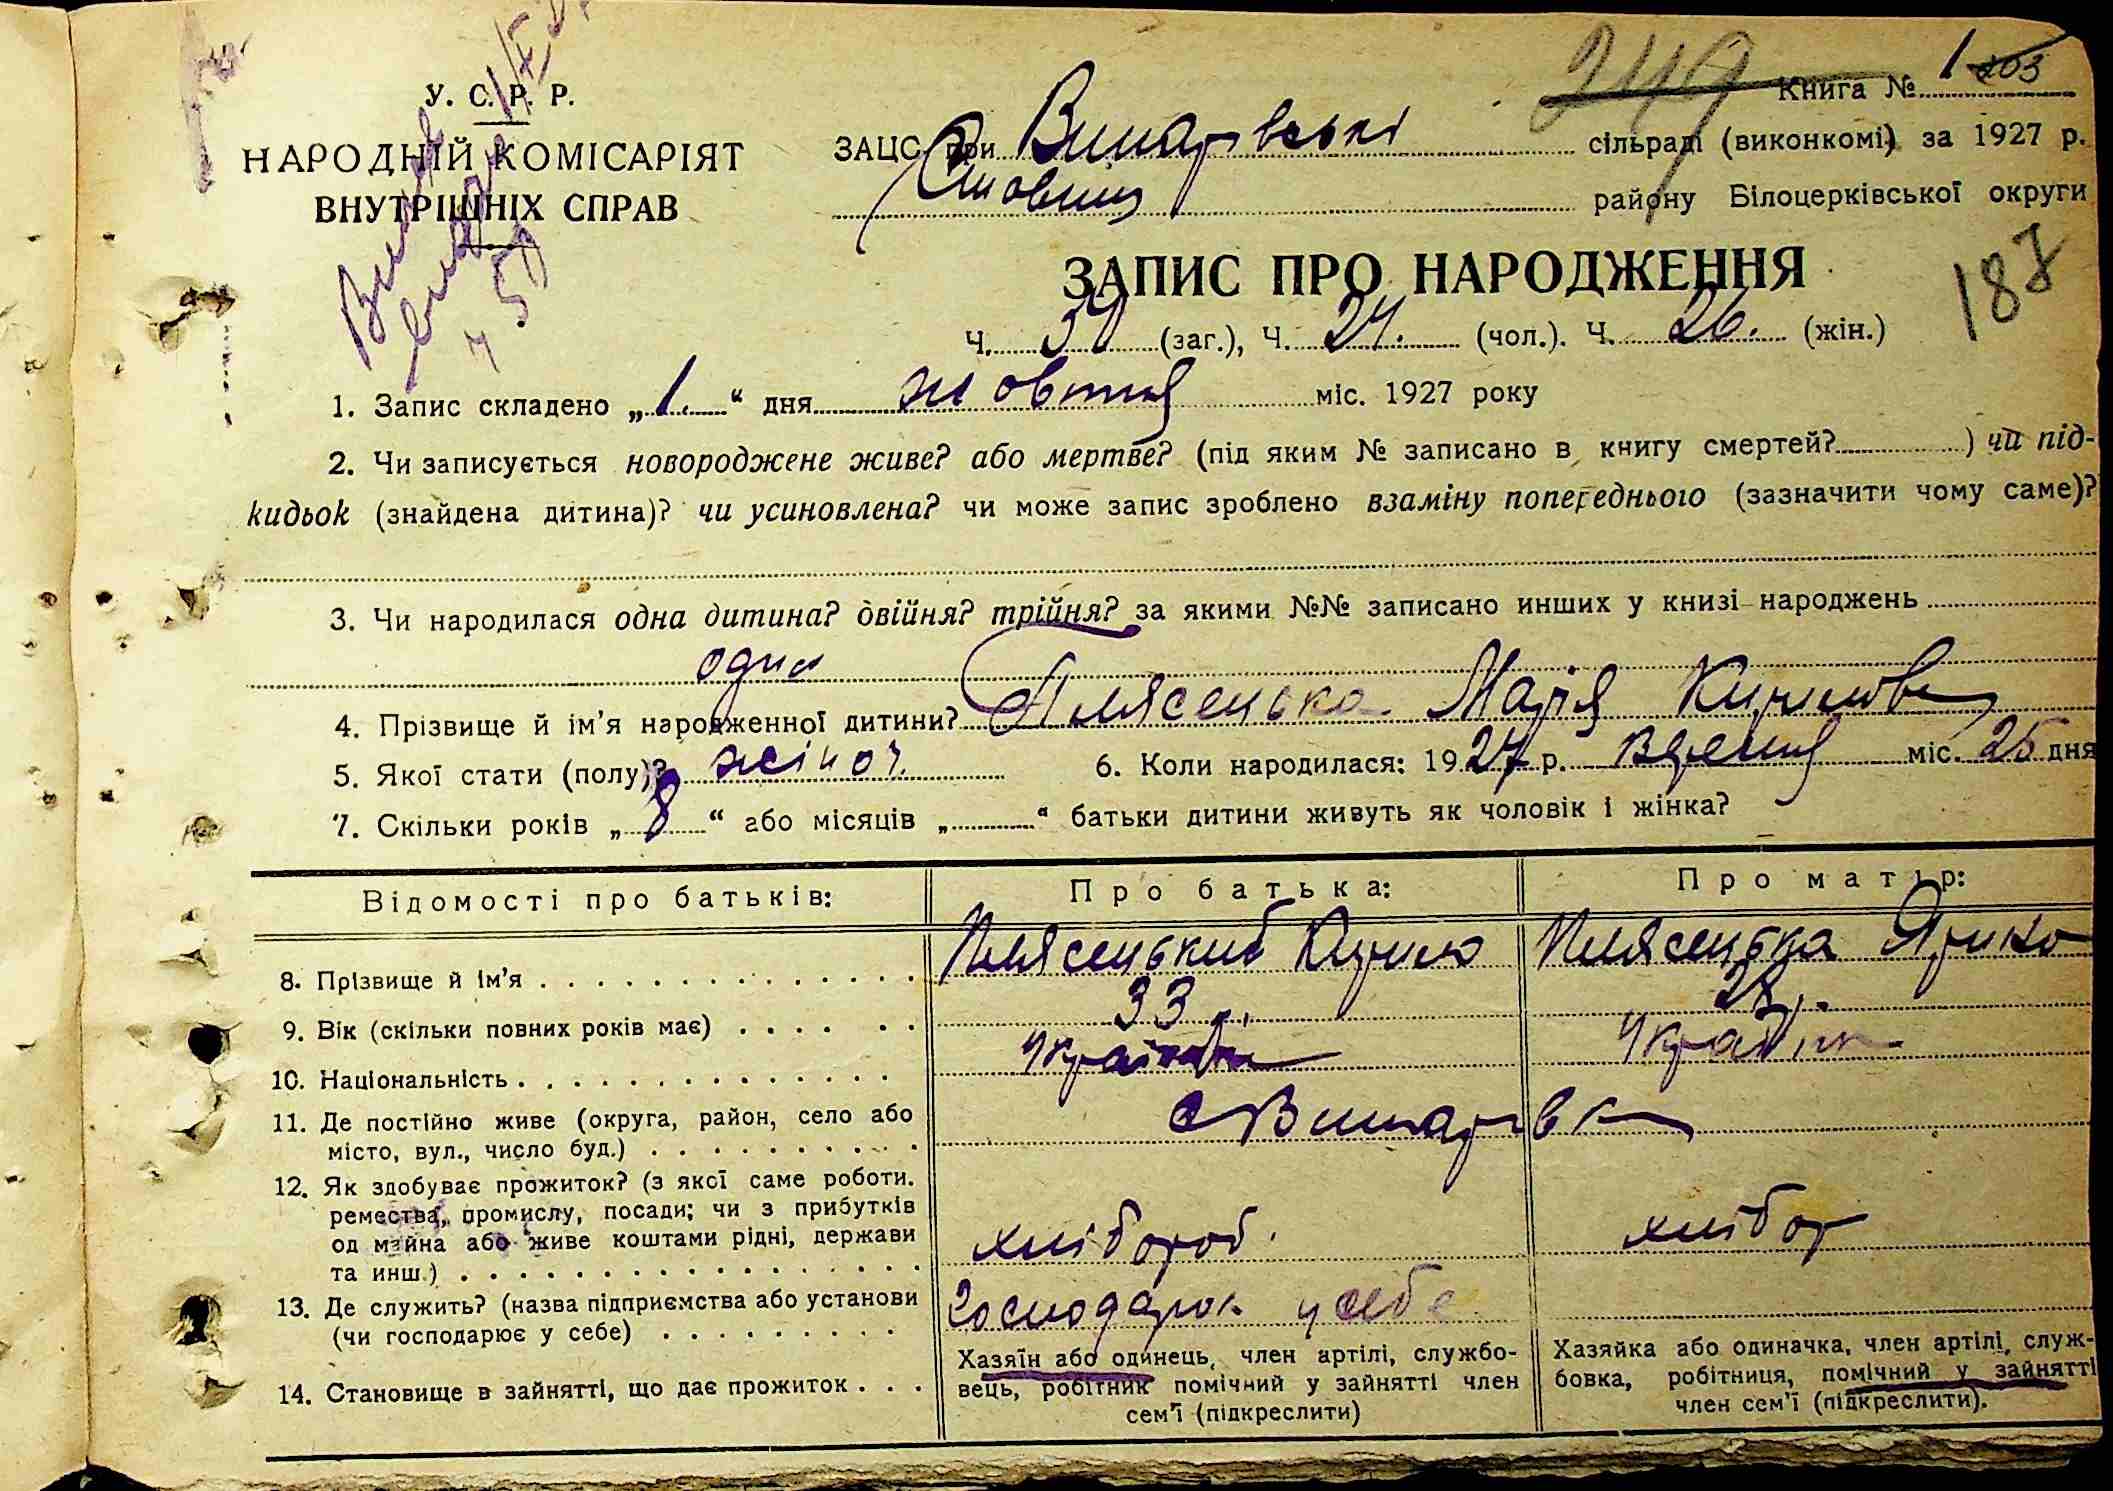 Книга № 1 203
249
У. С. Р. Р.
НАРОДНІЙ КОМІСАРІЯТ
ВНУТРІШНІХ СПРАВ
ЗАЦС при сільраді (виконкомі) за 1927 р.
району Білоцерківської округи
ЗАПИС ПРО НАРОДЖЕННЯ
187
Ч. (заг.), Ч. 24. (чол.). Ч. 26. (жін.)
1. Запис складено „1.“ дня жовтня міс. 1927 року
2. Чи записується новороджене живе? або мертве? (під яким № записано в книгу смертей? ) чи під-
кидьок (знайдена дитина)? чи усиновлена? чи може запис зроблено взаміну попереднього (зазначити чому саме)?
3. Чи народилася одна дитина? двійня? трійня? за якими №№ записано инших у книзі народжень
одна
4. Прізвище й ім’я народженної дитини? Плясецька Марія Кирилов
5. Якої стати (полу)? жіноч. 6. Коли народилася: 1927 р. вересня міс. 25 дня
7. Скільки років „8“ або місяців „ “ батьки дитини живуть як чоловік і жінка?
Відомості про батьків: Про батька: Про матір:
8. Прізвище й ім’я Плясецький Кирило Плясецька Ярина
9. Вік (скільки повних років має) 33 р. 28 р.
10. Національність
11. Де постійно живе (округа, район, село або
місто, вул., число буд.)
12. Як здобуває прожиток? (з якої саме роботи.
ремества, промислу, посади; чи з прибутків
од майна або живе коштами рідні, держави
та инш.) хлібороб. хлібор
13. Де служить? (назва підприємства або установи
(чи господарює у себе) у себе
14. Становище в зайнятті, що дає прожиток
Хазяїн або одинець, член артілі, службо-
вець, робітник помічний у зайнятті член
сем’ї (підкреслити)
Хазяйка або одиначка, член артілі, служ-
бовка, робітниця, помічний у зайнятті
член сем’ї (підкреслити).